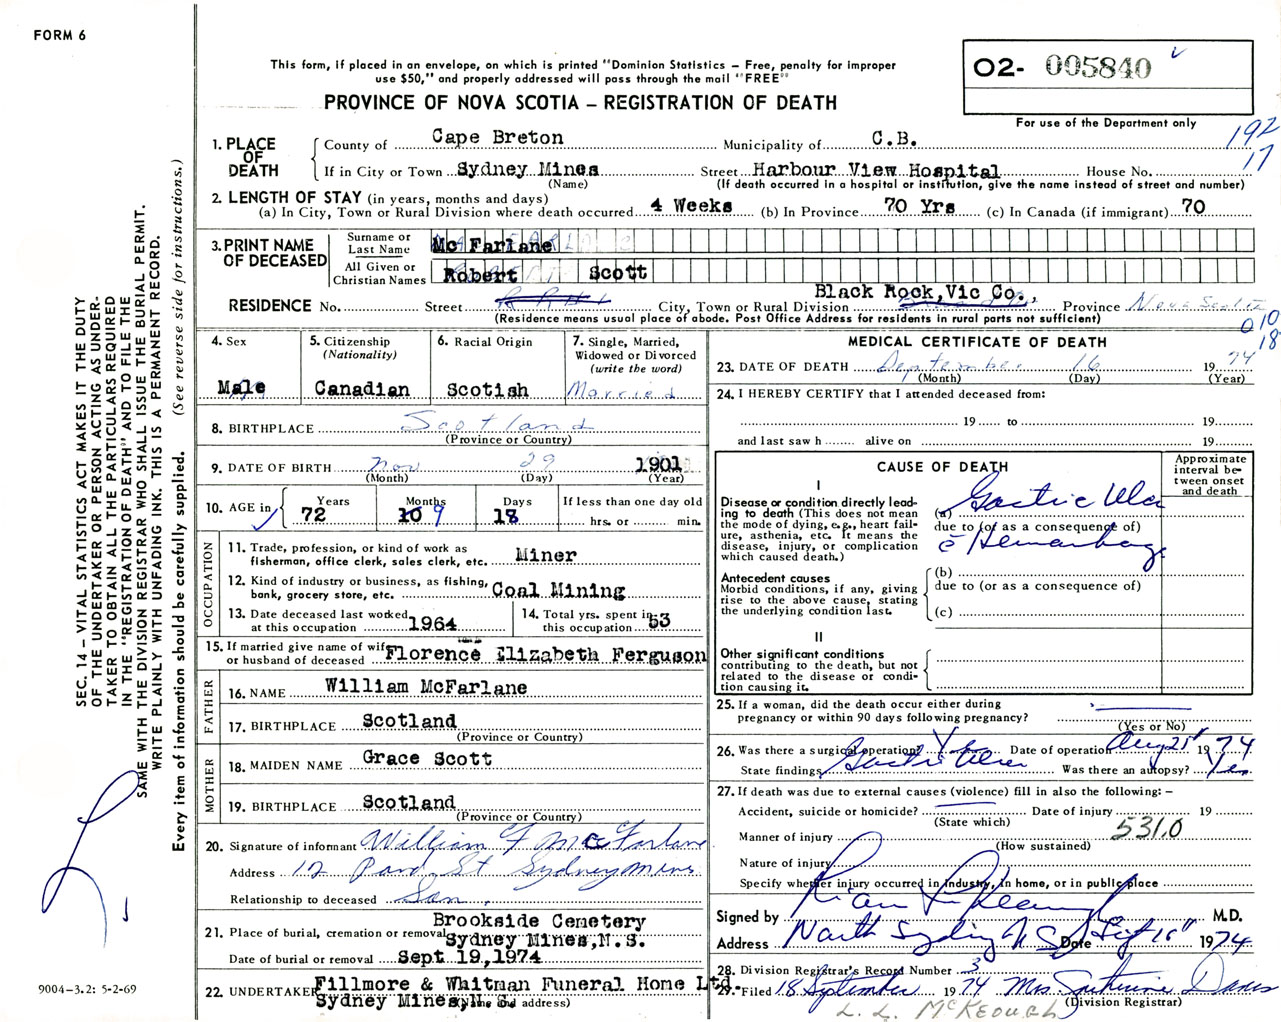 FORM 6
This form, if placed in an envelope, on which is printed "Dominion Statistics – Free, penalty for improper
use $50," and properly addressed will pass through the mail "FREE"
PROVINCE OF NOVA SCOTIA – REGISTRATION OF DEATH
O2- 005840
For use of the Department only
192
17
1. PLACE OF DEATH
County of Cape Breton Municipality of C.B.
If in City or Town Sydney Mines Street Harbour View Hospital House No.
(Name) (If death occurred in a hospital or institution, give the name instead of street and number)
2. LENGTH OF STAY (in years, months and days)
(a) In City, Town or Rural Division where death occurred 4 Weeks (b) In Province 70 Yrs (c) In Canada (if immigrant) 70
3. PRINT NAME OF DECEASED
Surname or Last Name Mc Farlane
All Given or Christian Names Robert Scott
Black Rock, Vic Co.,
RESIDENCE No. Street City, Town or Rural Division Province Nova Scotia
(Residence means usual place of abode. Post Office Address for residents in rural parts not sufficient)
010
18
4. Sex Male
5. Citizenship (Nationality) Canadian
6. Racial Origin Scotish
7. Single, Married, Widowed or Divorced (write the word) Married
8. BIRTHPLACE Scotland
(Province or Country)
9. DATE OF BIRTH Nov 29 1901
(Month) (Day) (Year)
10. AGE in Years 72 Months 10 9 Days 18 If less than one day old hrs. or min.
OCCUPATION
11. Trade, profession, or kind of work as fisherman, office clerk, sales clerk, etc. Miner
12. Kind of industry or business, as fishing, bank, grocery store, etc. Coal Mining
13. Date deceased last worked at this occupation 1964
14. Total yrs. spent in this occupation 53
15. If married give name of wife or husband of deceased Florence Elizabeth Ferguson
FATHER
16. NAME William McFarlane
17. BIRTHPLACE Scotland
(Province or Country)
MOTHER
18. MAIDEN NAME Grace Scott
19. BIRTHPLACE Scotland
(Province or Country)
20. Signature of informant William F McFarlane
Address 12 St Sydney Mines
Relationship to deceased Son.
21. Place of burial, cremation or removal Brookside Cemetery
Sydney Mines, N.S.
Date of burial or removal Sept 19, 1974
22. UNDERTAKER Fillmore & Whitman Funeral Home Ltd.
Sydney Mines, N.S. (Name and address)
MEDICAL CERTIFICATE OF DEATH
23. DATE OF DEATH September 16 1974
(Month) (Day) (Year)
24. I HEREBY CERTIFY that I attended deceased from:
19 to 19
and last saw h alive on 19
CAUSE OF DEATH
Approximate interval between onset and death
I
Disease or condition directly leading to death (This does not mean the mode of dying, e.g., heart failure, asthenia, etc. It means the disease, injury, or complication which caused death.)
(a) Gastric Ulcer
due to (or as a consequence of)
c̄ Hemorrhage
Antecedent causes
Morbid conditions, if any, giving rise to the above cause, stating the underlying condition last.
(b)
due to (or as a consequence of)
(c)
II
Other significant conditions
contributing to the death, but not related to the disease or condition causing it.
25. If a woman, did the death occur either during pregnancy or within 90 days following pregnancy?
(Yes or No)
26. Was there a surgical operation? Yes Date of operation Aug 25" 1974
State findings Gastric Ulcer Was there an autopsy? Yes
27. If death was due to external causes (violence) fill in also the following: –
Accident, suicide or homicide? Date of injury 19
(State which)
Manner of injury 531.0
(How sustained)
Nature of injury
Specify whether injury occurred in industry, in home, or in public place
Signed by M.D.
Address North Sydney N S Date Sept 16" 1974
28. Division Registrar's Record Number 3
29. Filed 18 September 1974 Mrs Davis
(Division Registrar)
L. L. McKEOUGH
SEC. 14 – VITAL STATISTICS ACT MAKES IT THE DUTY
OF THE UNDERTAKER OR PERSON ACTING AS UNDER-
TAKER TO OBTAIN ALL THE PARTICULARS REQUIRED
IN THE "REGISTRATION OF DEATH" AND TO FILE THE
SAME WITH THE DIVISION REGISTRAR WHO SHALL ISSUE THE BURIAL PERMIT.
WRITE PLAINLY WITH UNFADING INK. THIS IS A PERMANENT RECORD.
Every item of information should be carefully supplied. (See reverse side for instructions.)
9004-3.2: 5-2-69